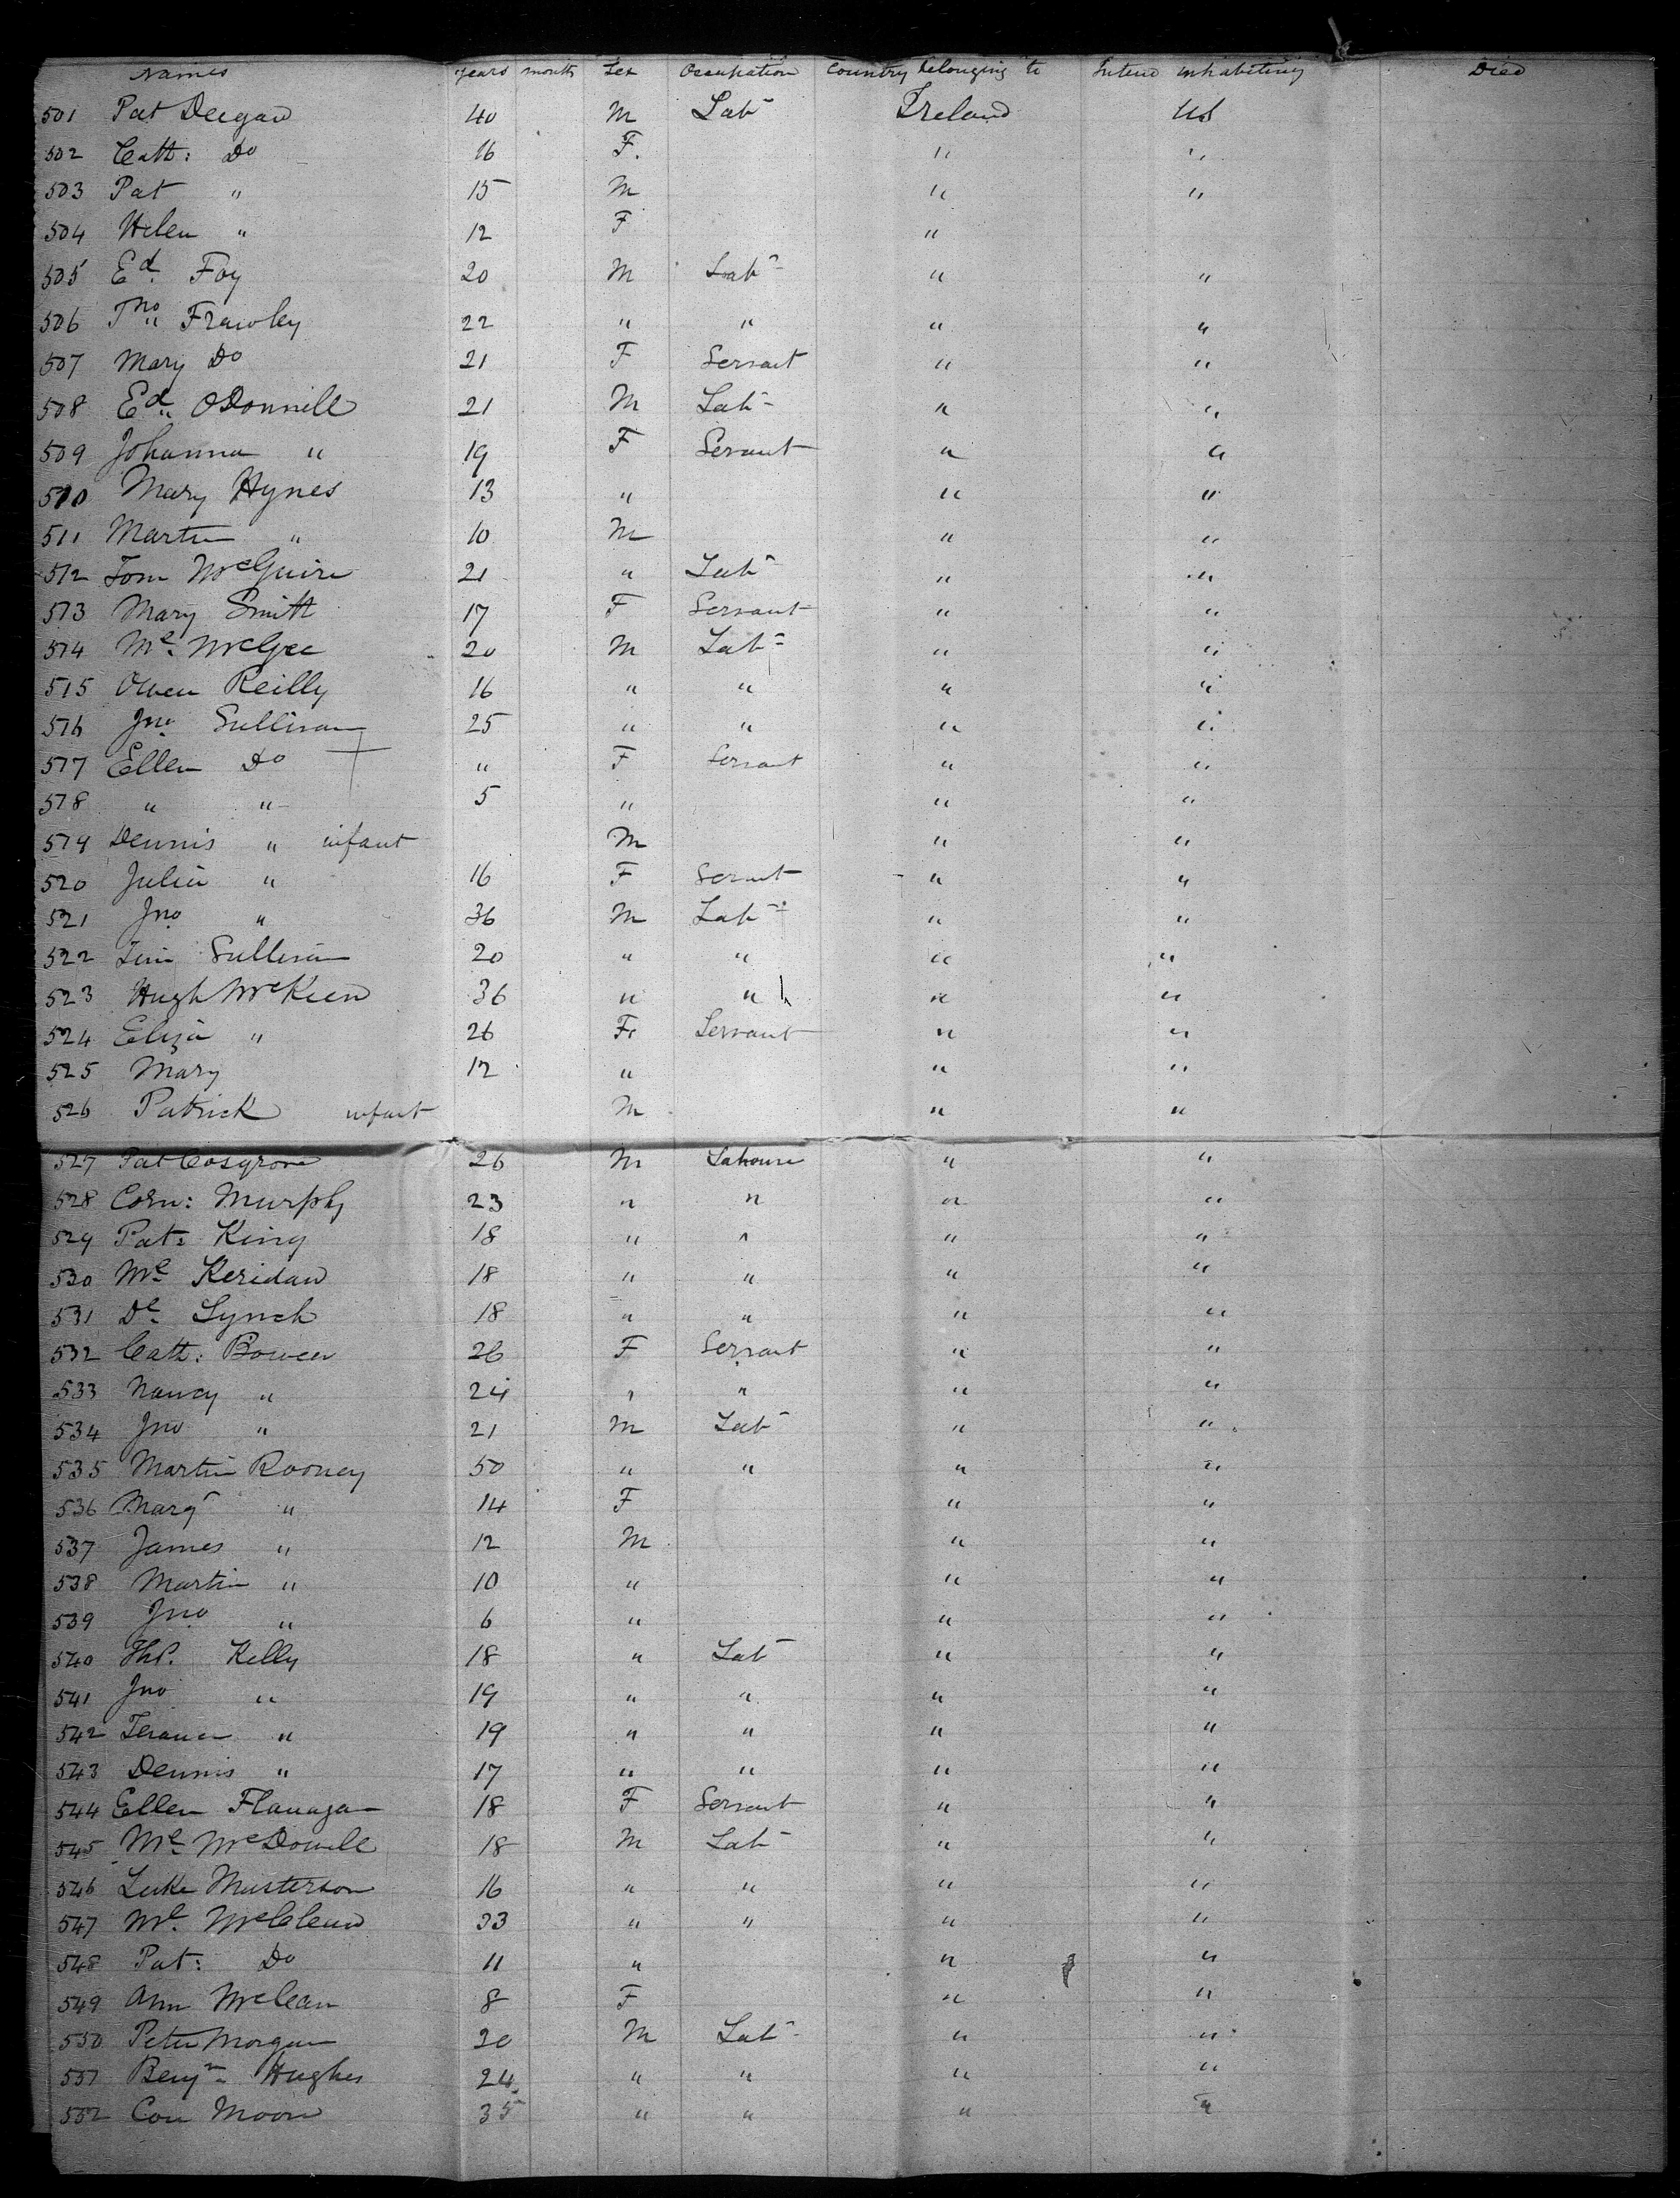 Names years month Sex Occupation Country belonging to Intend inhabiting Died
501 Pat Deegan 40 M Labr Ireland US
502 Cath: Do 16 F. " "
503 Pat " 15 M " "
504 Helen " 12 F "
505 Ed. Foy 20 M Labr " "
506 Thos Frawley 22 " " " "
507 Mary Do 21 F Servant " "
508 Ed. ODonnell 21 M Labr " "
509 Johanna " 19 F Servant " "
510 Mary Hynes 13 " " "
511 Martin " 10 M " "
512 Tom McGuire 21 " Labr " "
513 Mary Smith 17 F Servant " "
514 Ml. McGee 20 M Labr " "
515 Owen Reilly 16 " " " "
516 Jno. Sullivan 25 " " " "
517 Ellen Do " F Servant " "
518 " " 5 " " "
519 Dennis " infant M " "
520 Julia " 16 F Servant " "
521 Jno " 36 M Labr " "
522 Tim Sullivan 20 " " " "
523 Hugh McKeen 36 " " " "
524 Eliza " 26 F. Servant " "
525 Mary 12 " " "
526 Patrick infant M " "
527 Pat Cosgrove 26 M " "
528 Corn: Murphy 23 " " " "
529 Pat: King 18 " " " "
530 Ml. Keridan 18 " " " "
531 Dl. Lynch 18 " " " "
532 Cath: Bowen 26 F Servant " "
533 Nancy " 24 " " " "
534 Jno " 21 M Labr " "
535 Martin Rooney 50 " " " "
536 Margt " 14 F " "
537 James " 12 M " "
538 Martin " 10 " " "
539 Jno " 6 " " "
540 Thos. Kelly 18 " Labr " "
541 Jno " 19 " " " "
542 " 19 " " " "
543 Dennis " 17 " " " "
544 Ellen Flanagan 18 F Servant " "
545 Ml. McDowell 18 M Labr " "
546 Luke Masterson 16 " " " "
547 Ml. McClean 33 " " " "
548 Pat: Do 11 " " "
549 Ann McClean 8 F " "
550 Peter Morgan 30 M Labr " "
551 Benjn. Hughes 24 " " " "
552 Con Moore 35 " " " "